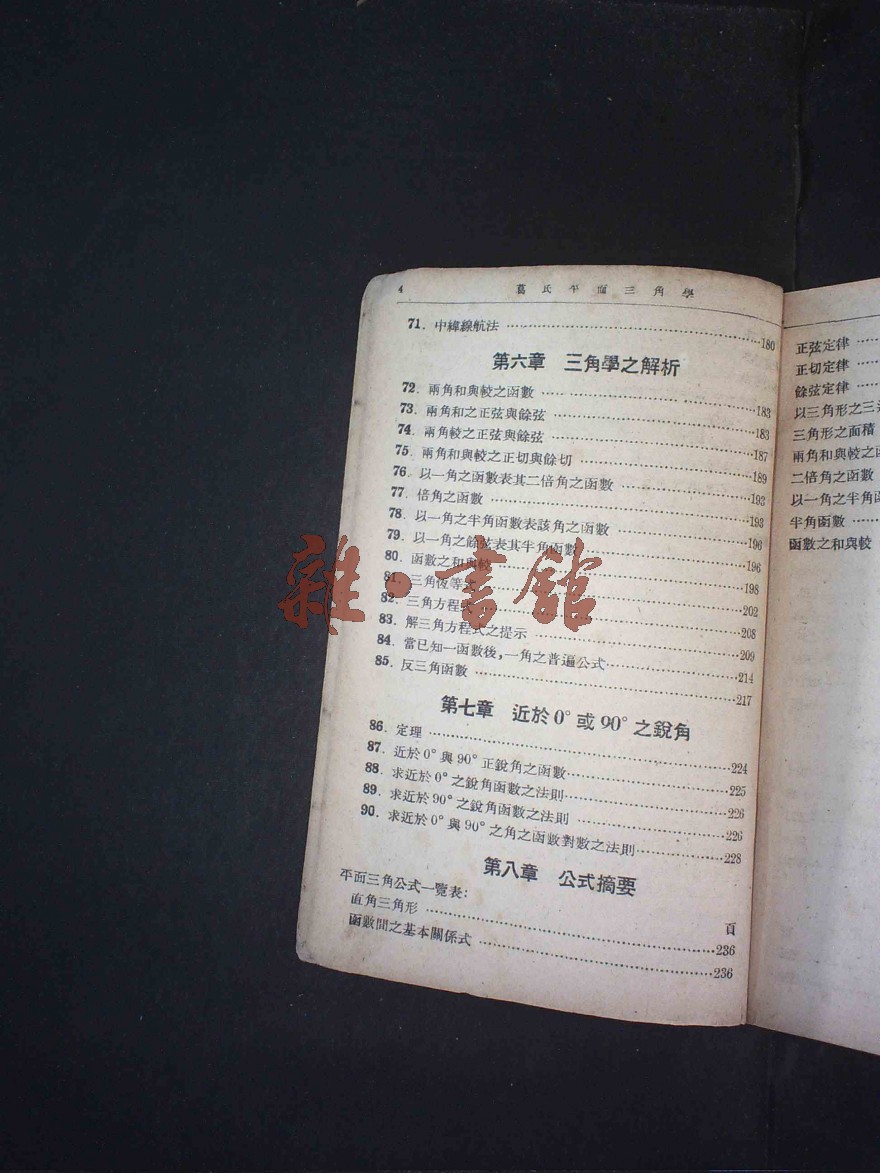 4 葛氏平面三角學
71. 中緯線航法 180
第六章 三角學之解析
72. 兩角和與較之函數 183
73. 兩角和之正弦與餘弦 183
74. 兩角較之正弦與餘弦 187
75. 兩角和與較之正切與餘切 189
76. 以一角之函數表其二倍角之函數 193
77. 倍角之函數 193
78. 以一角之半角函數表該角之函數 196
79. 以一角之餘弦表其半角函數 196
80. 函數之和與較 198
81. 三角恆等式 202
82. 三角方程式 208
83. 解三角方程式之提示 209
84. 當已知一函數後,一角之普遍公式 214
85. 反三角函數 217
第七章 近於0°或90°之銳角
86. 定理 224
87. 近於0°與90°正銳角之函數 225
88. 求近於0°之銳角函數之法則 226
89. 求近於90°之銳角函數之法則 226
90. 求近於0°與90°之角之函數對數之法則 228
第八章 公式摘要
平面三角公式一覽表:
頁
直角三角形 236
函數間之基本關係式 236
正弦定律
正切定律
餘弦定律
以三角形之三
三角形之面積
兩角和與較之
二倍角之函數
以一角之半角
半角函數
函數之和與較
雜·書館